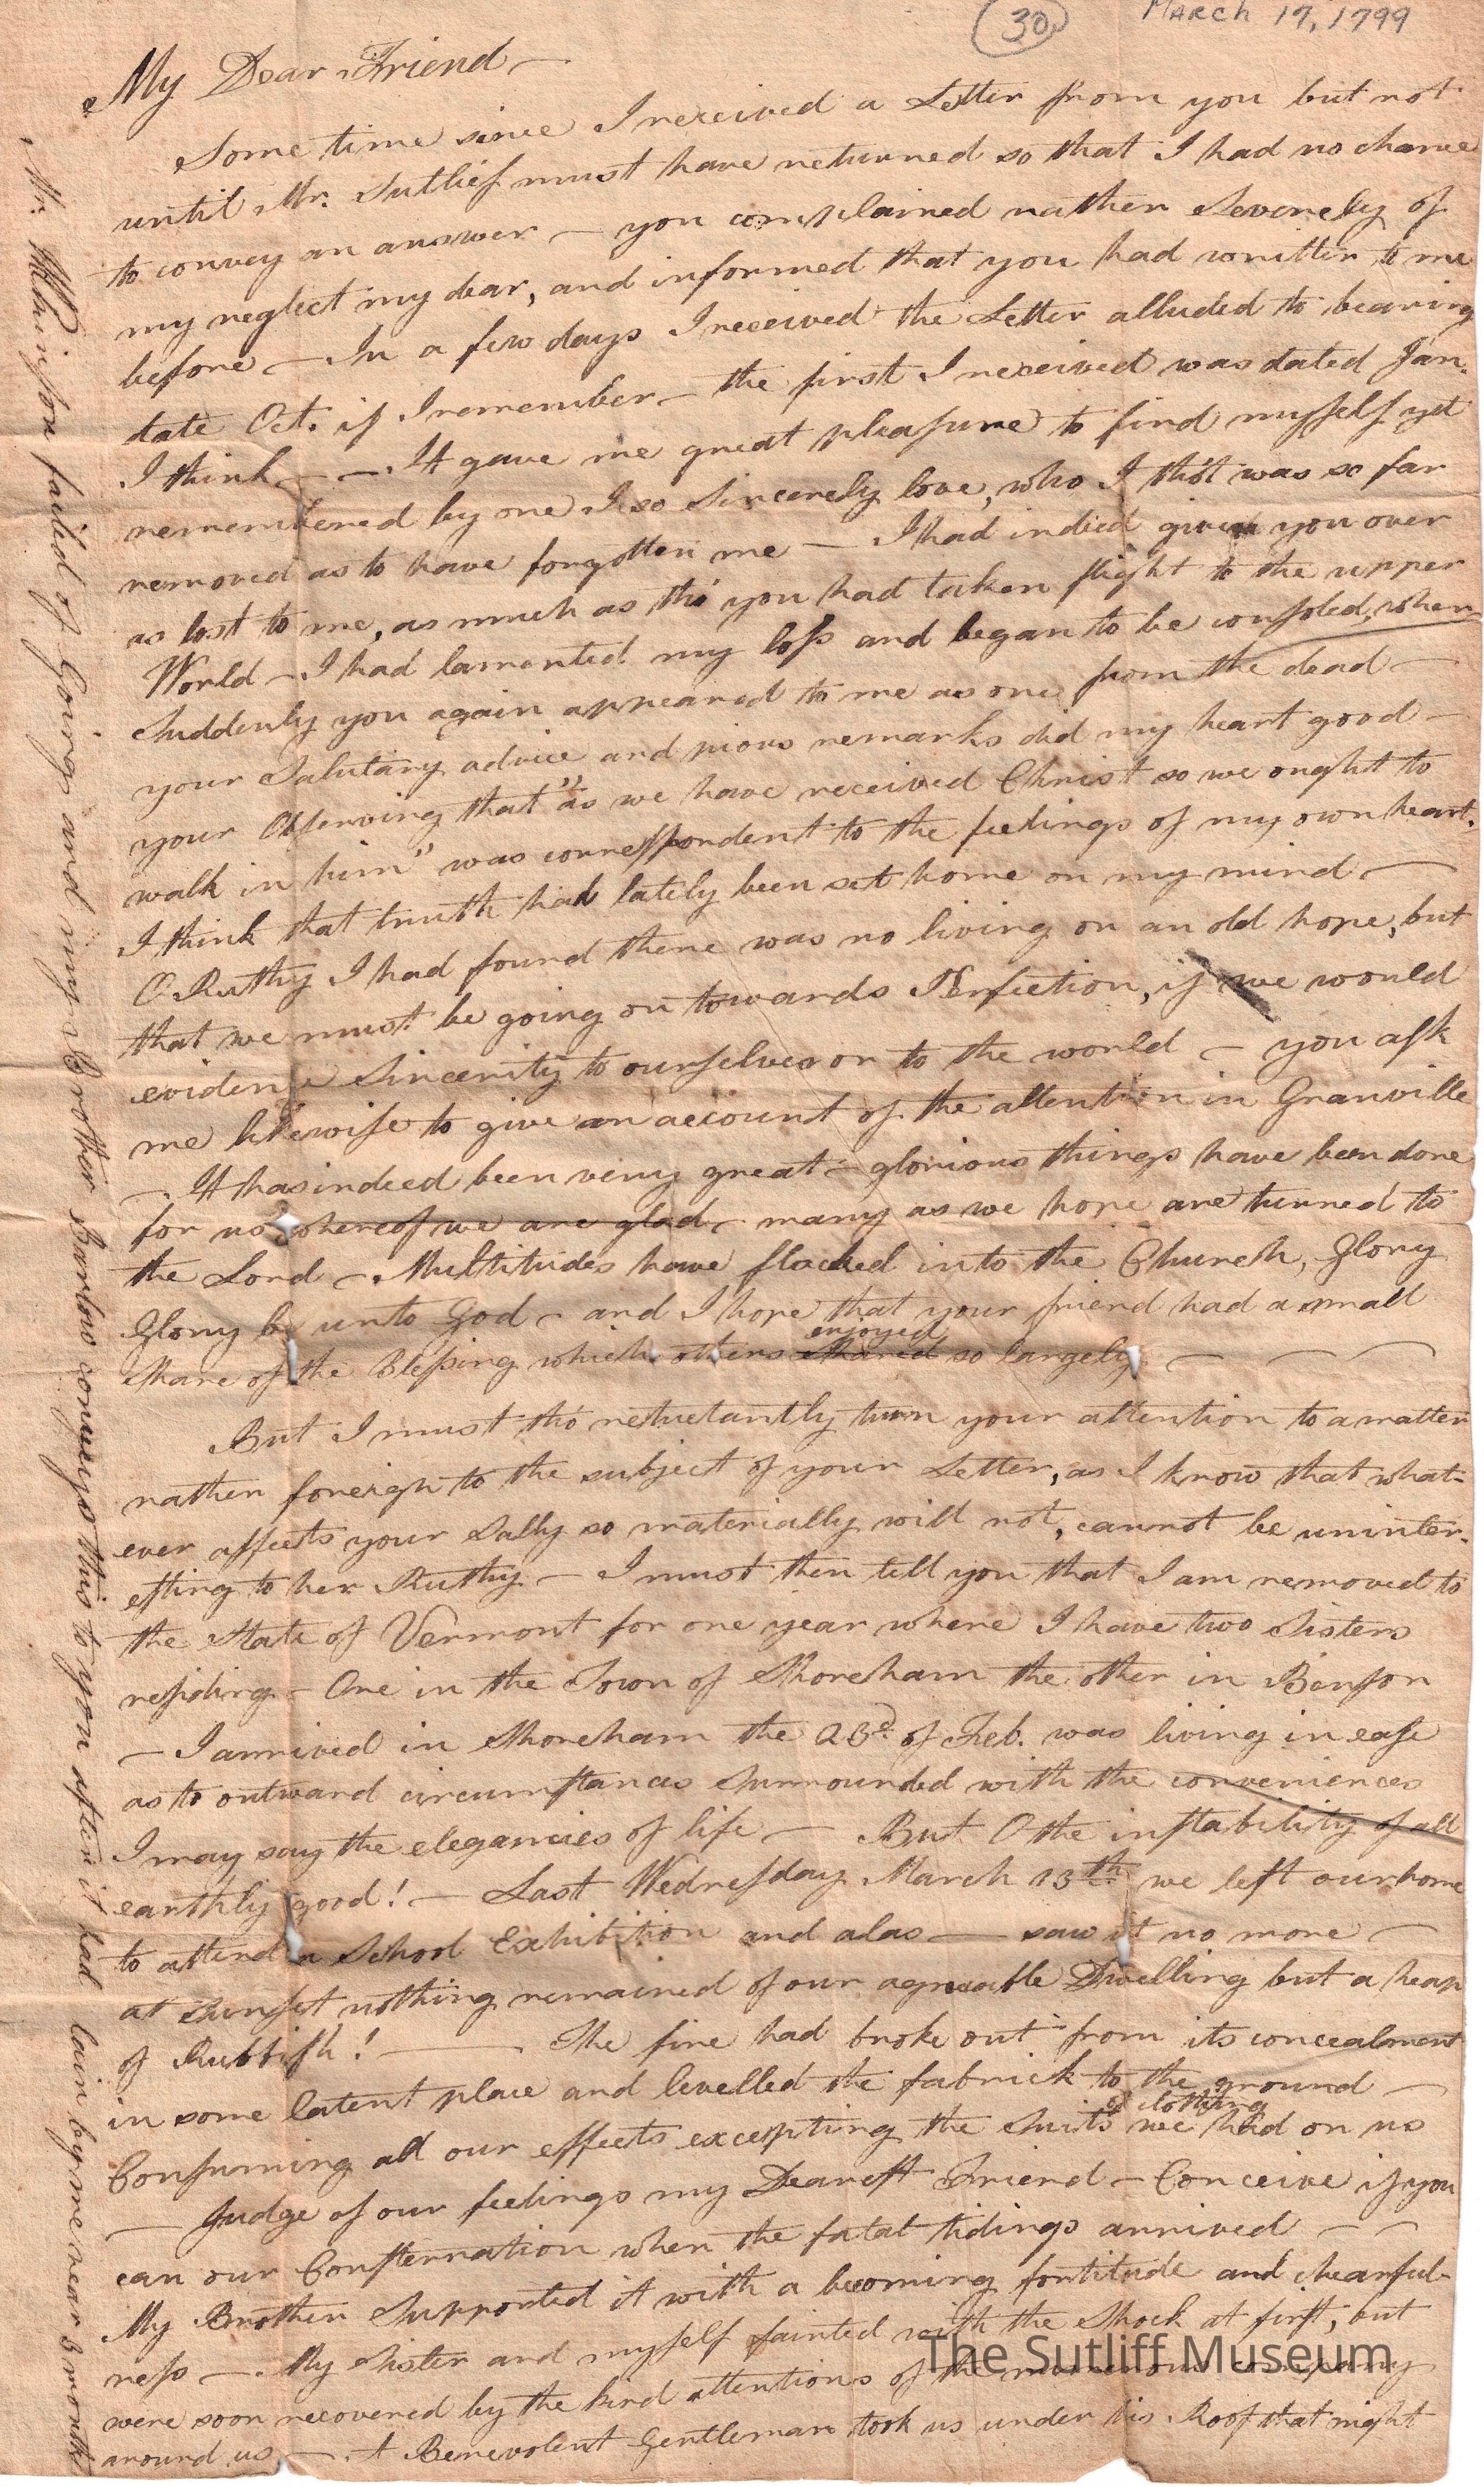 30
MARCH 17, 1799
My Dear Friend —
Some time since I received a Letter from you but not
until Mr. Sutlief must have returned so that I had no chance
to convey an answer — you complained rather Severely of
my neglect my dear, and informed that you had written to me
before — In a few days I received the Letter alluded to bearing
date Oct. if I remember — the first I received was dated Jan.
I think — — It gave me great pleasure to find myself yet
remembered by one I so Sincerely love, who I tho't was so far
removed as to have forgotten me — I had indeed given you over
as lost to me, as much as tho' you had taken flight to the upper
World — I had lamented my loss and began to be consoled, when
Suddenly you again appeared to me as one from the dead —
your Salutary advice and pious remarks did my heart good —
your Observing that "as we have received Christ so we ought to
walk in him" was correspondent to the feelings of my own heart.
I think that truth had lately been set home on my mind —
O Ruthy I had found there was no living on an old hope, but
that we must be going on towards Perfection, if we would
evidence Sincerity to ourselves or to the world — you ask
me likewise to give an account of the attention in Granville
— It has indeed been very great — glorious things have been done
for us whereof we are glad — many as we hope are turned to
the Lord — Multitudes have flocked into the Church, Glory
Glory be unto God — and I hope that your friend had a small
enjoyed
Share of the Blessing which others shared so largely — — —
But I must tho' reluctantly turn your attention to a matter
rather foreign to the subject of your Letter, as I know that what-
ever affects your Sally so materially will not, cannot be uninter-
esting to her Ruthy — I must then tell you that I am removed to
the State of Vermont for one year where I have two Sisters
residing — One in the Town of Shoreham the other in Benson
— I arrived in Shoreham the 23d of Feb. was living in ease
as to outward circumstances Surrounded with the conveniences
I may say the elegancies of life — But O the instability of all
earthly good! — Last Wednesday March 13th we left our home
to attend a School Exhibition and alas — saw it no more —
at Sunset nothing remained of our agreeable Dwelling but a heap
of Rubbish! — The fire had broke out from its concealment
in some latent place and levelled the fabrick to the ground —
of clothing
Consuming all our effects excepting the Suits we had on us
— Judge of our feelings my Dearest Friend — Conceive if you
can our Consternation when the fatal tidings arrived — —
My Brother Supported it with a becoming fortitude and chearful-
ness — My Sister and myself fainted with the Shock at first, but
were soon recovered by the kind attentions of the numerous company
around us — A Benevolent Gentleman took us under his Roof that night
Mr. failed of Going and my Brother Barlow conveys this to you after it had lain by me near 3 months
The Sutliff Museum